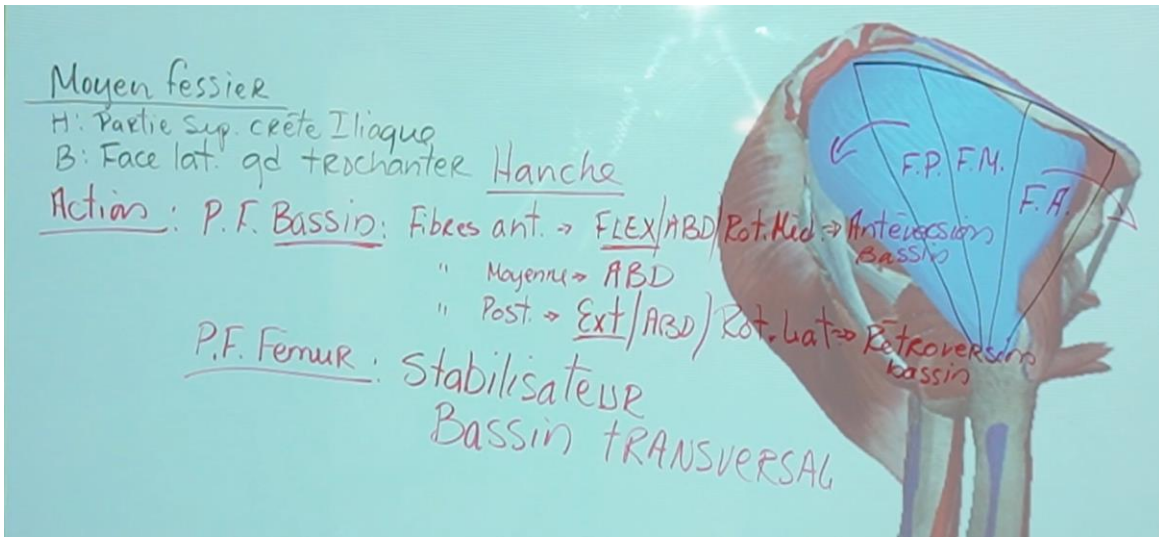 Moyen fessier
H: Partie Sup. crête Iliaque
B: Face lat. gd trochanter
Hanche
Action: P.F. Bassin: Fibres ant. → FLEX/ABD/Rot.Med ⇒ Antéversion Bassin
" Moyenne → ABD
" Post. → Ext/ABD/Rot.Lat ⇒ Rétroversion bassin
P.F. Femur: Stabilisateur
Bassin TRANSVERSAL
F.P. F.M.
F.A.